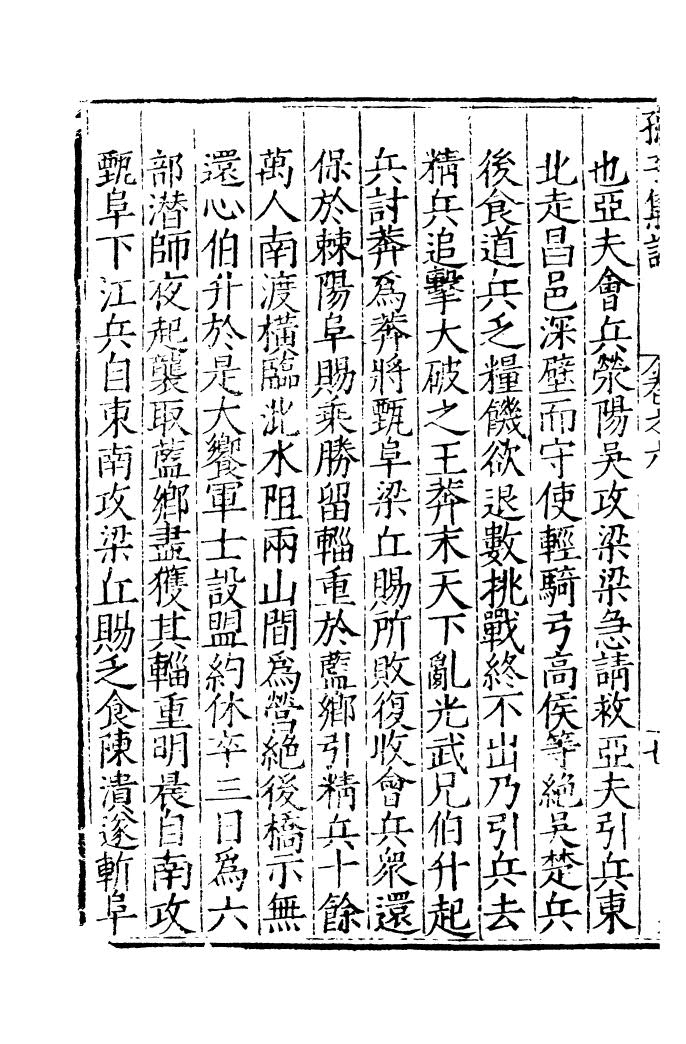 孫子集註
卷之六
七
也亞夫會兵滎陽吳攻梁梁急請救亞夫引兵東
北走昌邑深壁而守使輕騎弓高侯等絕吳楚兵
後食道兵乏糧饑欲退數挑戰終不出乃引兵去
精兵追擊大破之王莽末天下亂光武兄伯升起
兵討莽爲莽將甄阜梁丘賜所敗復收會兵衆還
保於棘陽阜賜乘勝留輜重於藍鄉引精兵十餘
萬人南渡橫臨沘水阻兩山間爲營絕後橋示無
還心伯升於是大饗軍士設盟約休卒三日爲六
部潛師夜起襲取藍鄉盡獲其輜重明晨自南攻
甄阜下江兵自東南攻梁丘賜乏食陳潰遂斬阜